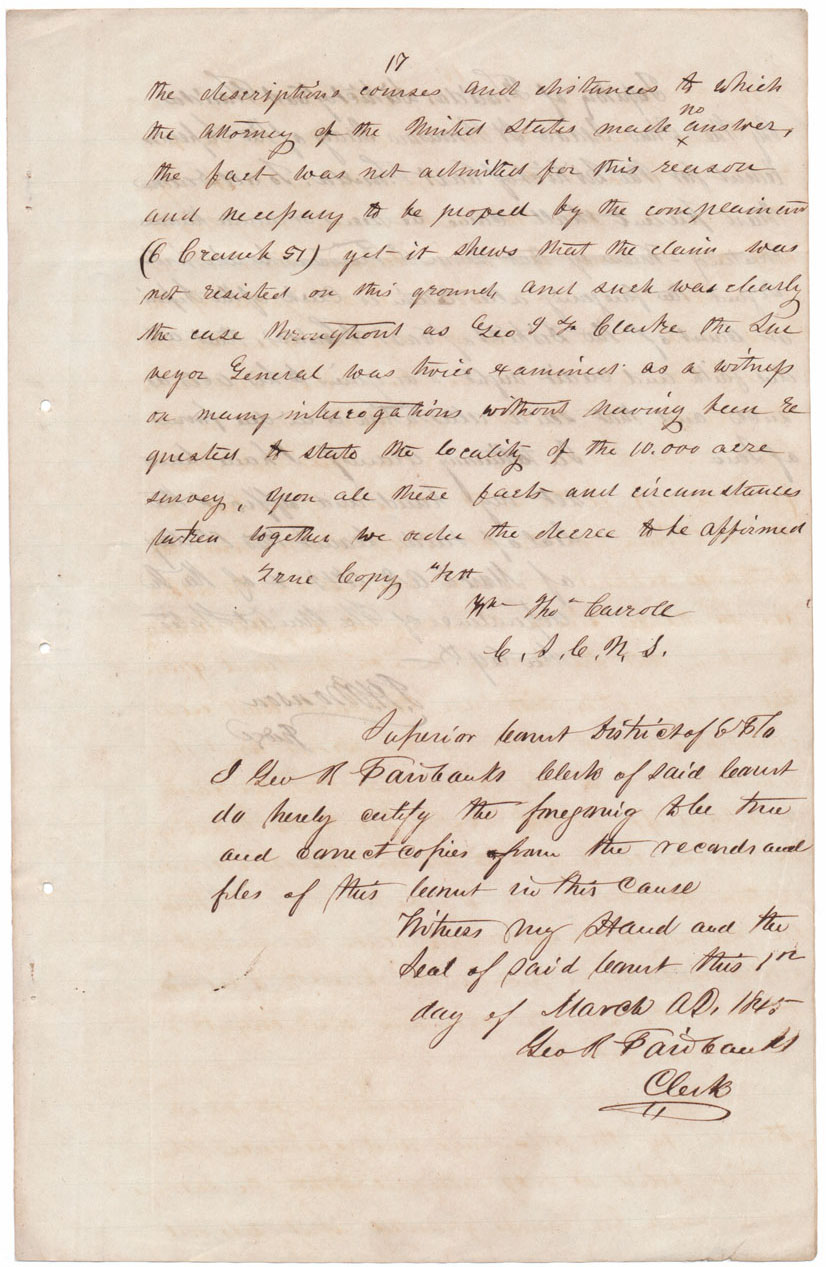 17
the descriptions courses and distances to which
the attorney of the United States made no answer,
the fact was not admitted for this reason
and necessary to be proved by the complainant
(6 Cranch 51) yet it shews that the claim was
not resisted on this ground, and such was clearly
the case throughout as Geo J F Clarke the Sur
veyor General was twice examined as a witness
on many interrogations without having been re
quested to state the locality of the 10.000 acre
survey, upon all these facts and circumstances
taken together we order the decree to be affirmed
True Copy
Wm Thos Carroll
C. S. C. U. S.
Superior Court District of E Flo
I Geo R Fairbanks Clerk of said Court
do hereby certify the foregoing to be true
and correct copies from the records and
files of this Court in this Cause
Witness my Hand and the
Seal of said Court this 1st
day of March AD. 1845
Geo R Fairbanks
Clerk